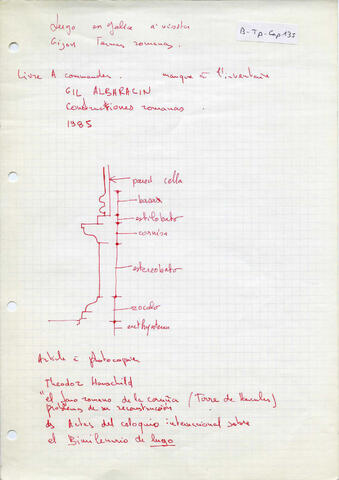 Luego en galice a visita
Gijon Termas romanas.
B-Tp-Cap 133
Livre A commander. manque à l'inventaire
GIL ALBARACIN
Construcciones romanas.
1985
pared cella
basa
estilobato
cornisa
estereobato
zocalo
euthynteria
Article à photocopier
Theodor Hauschild
"el faro romano de la coruña (Torre de Hercules)
problemas de su reconstrucción
ds Actas del coloquio internacional sobre
el Bimilenario de Lugo